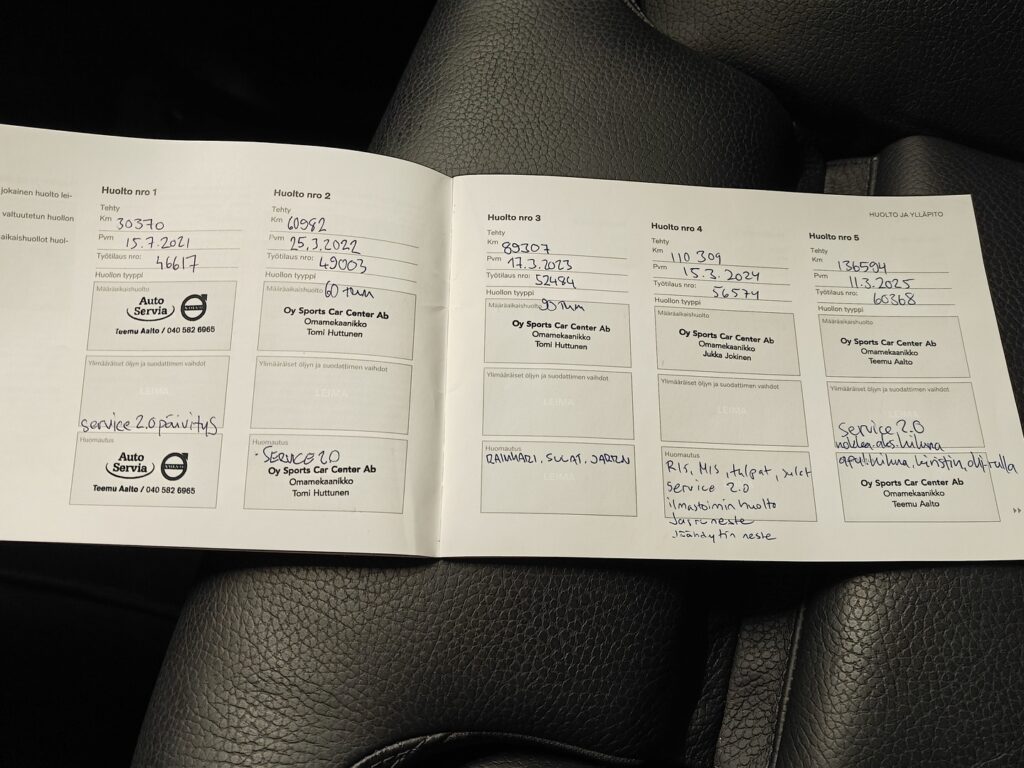 jokainen huolto lei-
valtuutetun huollon
aikaishuollot huol-
Huolto nro 1
Tehty
Km 30370
Pvm 15.7.2021
Työtilaus nro: 46617
Huollon tyyppi
Määräaikaishuolto
Auto
Servia
VOLVO
Teemu Aalto / 040 582 6965
Ylimääräiset öljyn ja suodattimen vaihdot
LEIMA
service 2.0 päivitys
Huomautus
Auto
Servia
VOLVO
Teemu Aalto / 040 582 6965
Huolto nro 2
Tehty
Km 60982
Pvm 25.3.2022
Työtilaus nro: 49003
Huollon tyyppi
Määräaikaishuolto 60 tkm
Oy Sports Car Center Ab
Omamekaanikko
Tomi Huttunen
Ylimääräiset öljyn ja suodattimen vaihdot
LEIMA
Huomautus
- SERVICE 2.0
Oy Sports Car Center Ab
Omamekaanikko
Tomi Huttunen
Huolto nro 3
Tehty
Km 89307
Pvm 17.3.2023
Työtilaus nro: 52484
Huollon tyyppi
Määräaikaishuolto 90 tkm
Oy Sports Car Center Ab
Omamekaanikko
Tomi Huttunen
Ylimääräiset öljyn ja suodattimen vaihdot
LEIMA
Huomautus
RAIKHARI, SULAT, JARRUN
LEIMA
Huolto nro 4
Tehty
Km 110 309
Pvm 15.3.2024
Työtilaus nro: 56574
Huollon tyyppi
Määräaikaishuolto
Oy Sports Car Center Ab
Omamekaanikko
Jukka Jokinen
Ylimääräiset öljyn ja suodattimen vaihdot
LEIMA
Huomautus
RIS, MIS, tulpat, sulat
Service 2.0
ilmastoinnin huolto
Jarruneste
Jäähdytin neste
HUOLTO JA YLLÄPITO
Huolto nro 5
Tehty
Km 136594
Pvm 11.3.2025
Työtilaus nro: 60368
Huollon tyyppi
Määräaikaishuolto
Oy Sports Car Center Ab
Omamekaanikko
Teemu Aalto
Ylimääräiset öljyn ja suodattimen vaihdot
Service 2.0
hihna
apul.hihna, kiristin, ohj.rulla
Oy Sports Car Center Ab
Omamekaanikko
Teemu Aalto